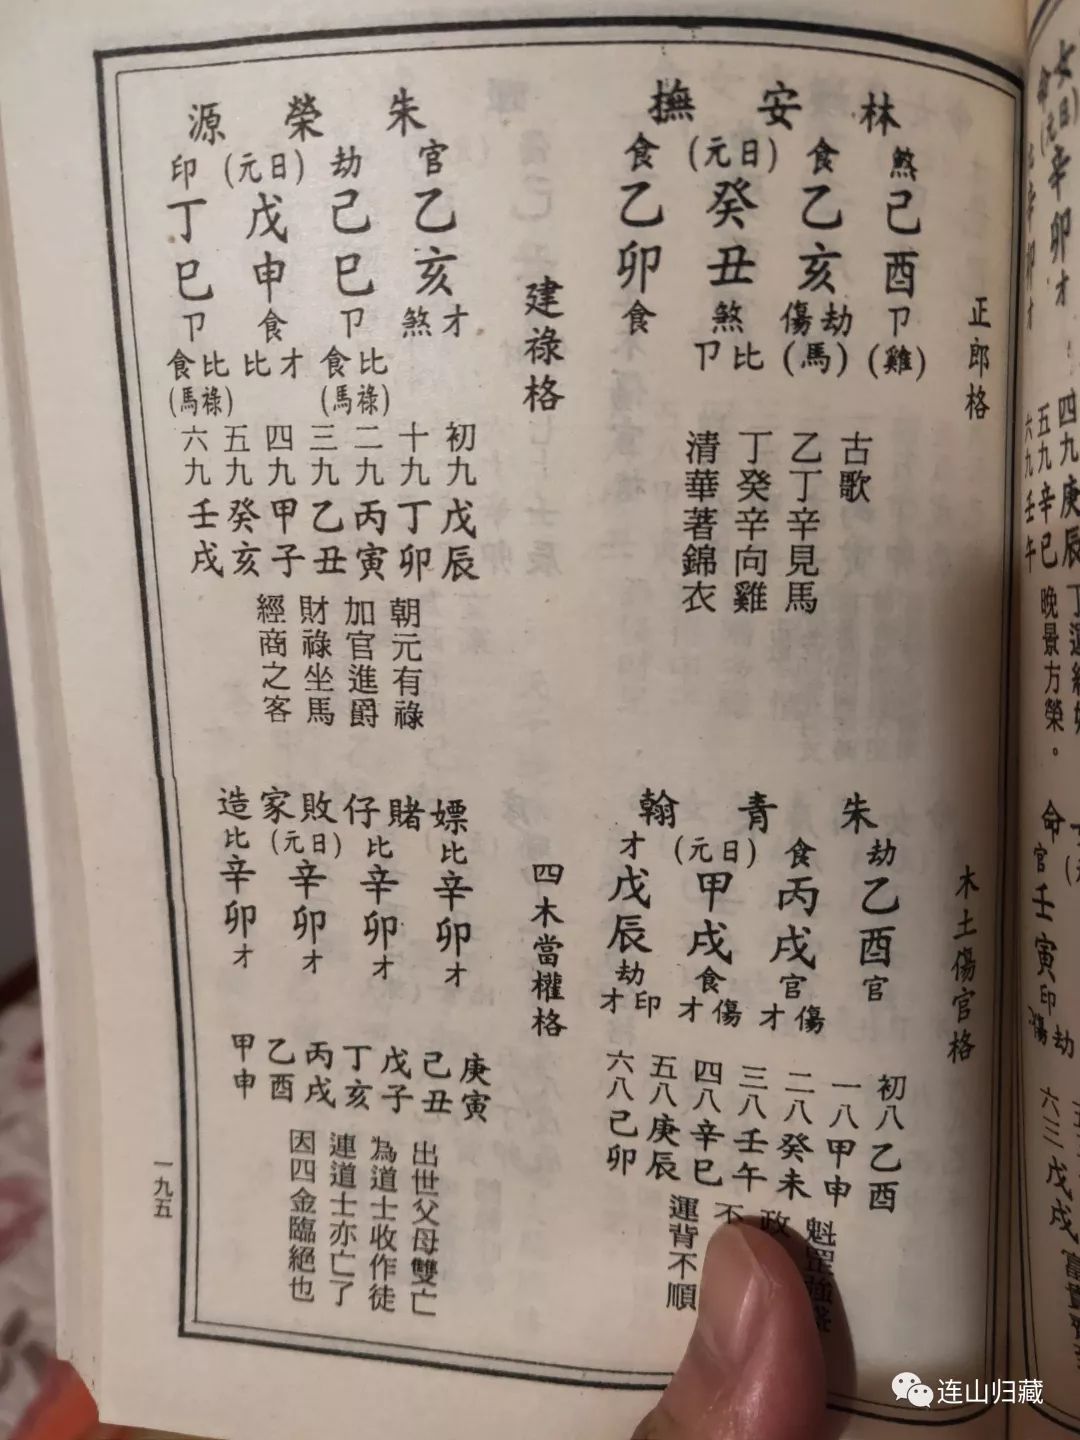 四九庚辰
五九辛巳
六九壬午
晚景方榮。
命
官
壬寅
印
劫
傷
六三戊戌
正郎格
林安撫
煞
己酉
卩
(雞)
食
乙亥
劫傷
(馬)
(日元)
癸丑
煞
比卩
食
乙卯
食
古歌
乙丁辛見馬
丁癸辛向雞
清華著錦衣
建祿格
朱榮源
官
乙亥
才煞
劫
己巳
卩
比食
(祿馬)
(日元)
戊申
食
才比
印
丁巳
卩
比食
(祿馬)
初九戊辰
十九丁卯
二九丙寅
三九乙丑
四九甲子
五九癸亥
六九壬戌
朝元有祿
加官進爵
財祿坐馬
經商之客
木土傷官格
朱青翰
劫
乙酉
官
食
丙戌
官
傷才
(日元)
甲戌
食
傷才
才
戊辰
劫
印才
初八乙酉
一八甲申
二八癸未
三八壬午
四八辛巳
五八庚辰
六八己卯
魁罡強
政
不
運背不順
四木當權格
嫖賭仔敗家造
比
辛卯
才
比
辛卯
才
(日元)
辛卯
才
比
辛卯
才
庚寅
己丑
戊子
丁亥
丙戌
乙酉
甲申
出世父母雙亡
為道士收作徒
連道士亦亡了
因四金臨絕也
一九五
连山归藏